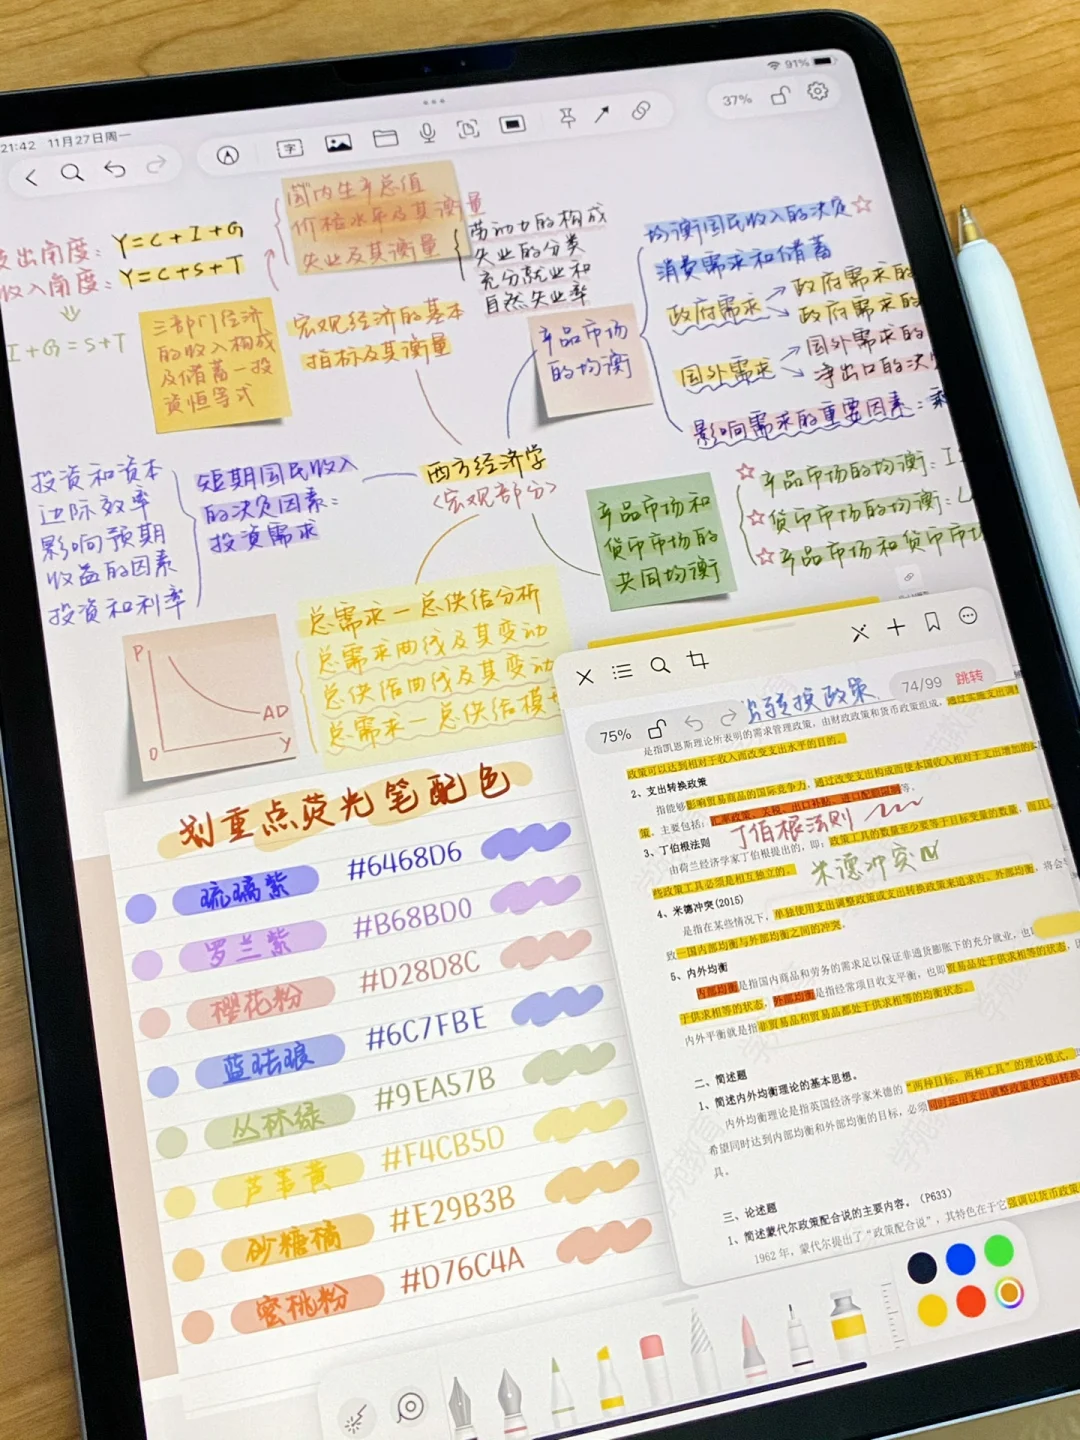 21:42 11月27日周一
91%
37%
字
支出角度: Y=C+I+G
收入角度: Y=C+S+T
I+G=S+T
三部门经济
的收入构成
及储蓄一投
资恒等式
国内生产总值
价格水平及其衡量
失业及其衡量
劳动力的构成
失业的分类
充分就业和
自然失业率
宏观经济的基本
指标及其衡量
产品市场
的均衡
均衡国民收入的决定☆
消费需求和储蓄
政府需求
政府需求的
政府需求的
国外需求
国外需求的
净出口的决
影响需求的重要因素:
西方经济学
<宏观部分>
投资和资本
边际效率
影响预期
收益的因素
投资和利率
短期国民收入
的决定因素:
投资需求
产品市场和
货币市场的
共同均衡
☆产品市场的均衡: I
☆货币市场的均衡: L
☆产品市场和货币市场
P
AD
O
Y
总需求一总供给分析
总需求曲线及其变动
总供给曲线及其变动
总需求一总供给模
划重点荧光笔配色
琉璃紫 #6468D6
罗兰紫 #B68BD0
樱花粉 #D28D8C
蓝珐琅 #6C7FBE
丛林绿 #9EA57B
芦苇黄 #F4CB5D
砂糖橘 #E29B3B
蜜桃粉 #D76C4A
75%
支出转换政策
74/99 跳转
是指凯恩斯理论所表明的需求管理政策，由财政政策和货币政策组成，通过实施支出调
政策可以达到相对于收入而改变支出水平的目的。
2、支出转换政策
指能够影响贸易商品的国际竞争力，通过改变支出构成而使本国收入相对于支出增加的
策。主要包括：汇率政策、关税、出口补贴、进口配额限制等。
3、丁伯根法则
丁伯根法则
由荷兰经济学家丁伯根提出的，即：政策工具的数量至少要等于目标变量的数量，而且
些政策工具必须是相互独立的。
米德冲突
4、米德冲突(2015)
是指在某些情况下，单独使用支出调整政策或支出转换政策来追求内、外部均衡，将会
致一国内部均衡与外部均衡之间的冲突。
5、内外均衡
内部均衡是指国内商品和劳务的需求足以保证非通货膨胀下的充分就业，也
于供求相等的状态，外部均衡是指经常项目收支平衡，也即贸易品处于供求相等的状态，
内外平衡就是指非贸易品和贸易品都处于供求相等的均衡状态。
二、简述题
1、简述内外均衡理论的基本思想。
内外均衡理论是指英国经济学家米德的“两种目标，两种工具”的理论模式，
希望同时达到内部均衡和外部均衡的目标，必须同时运用支出调整政策和支出转换
具。
三、论述题
1、简述蒙代尔政策配合说的主要内容。（P633）
1962年，蒙代尔提出了“政策配合说”，其特色在于它强调以货币政策